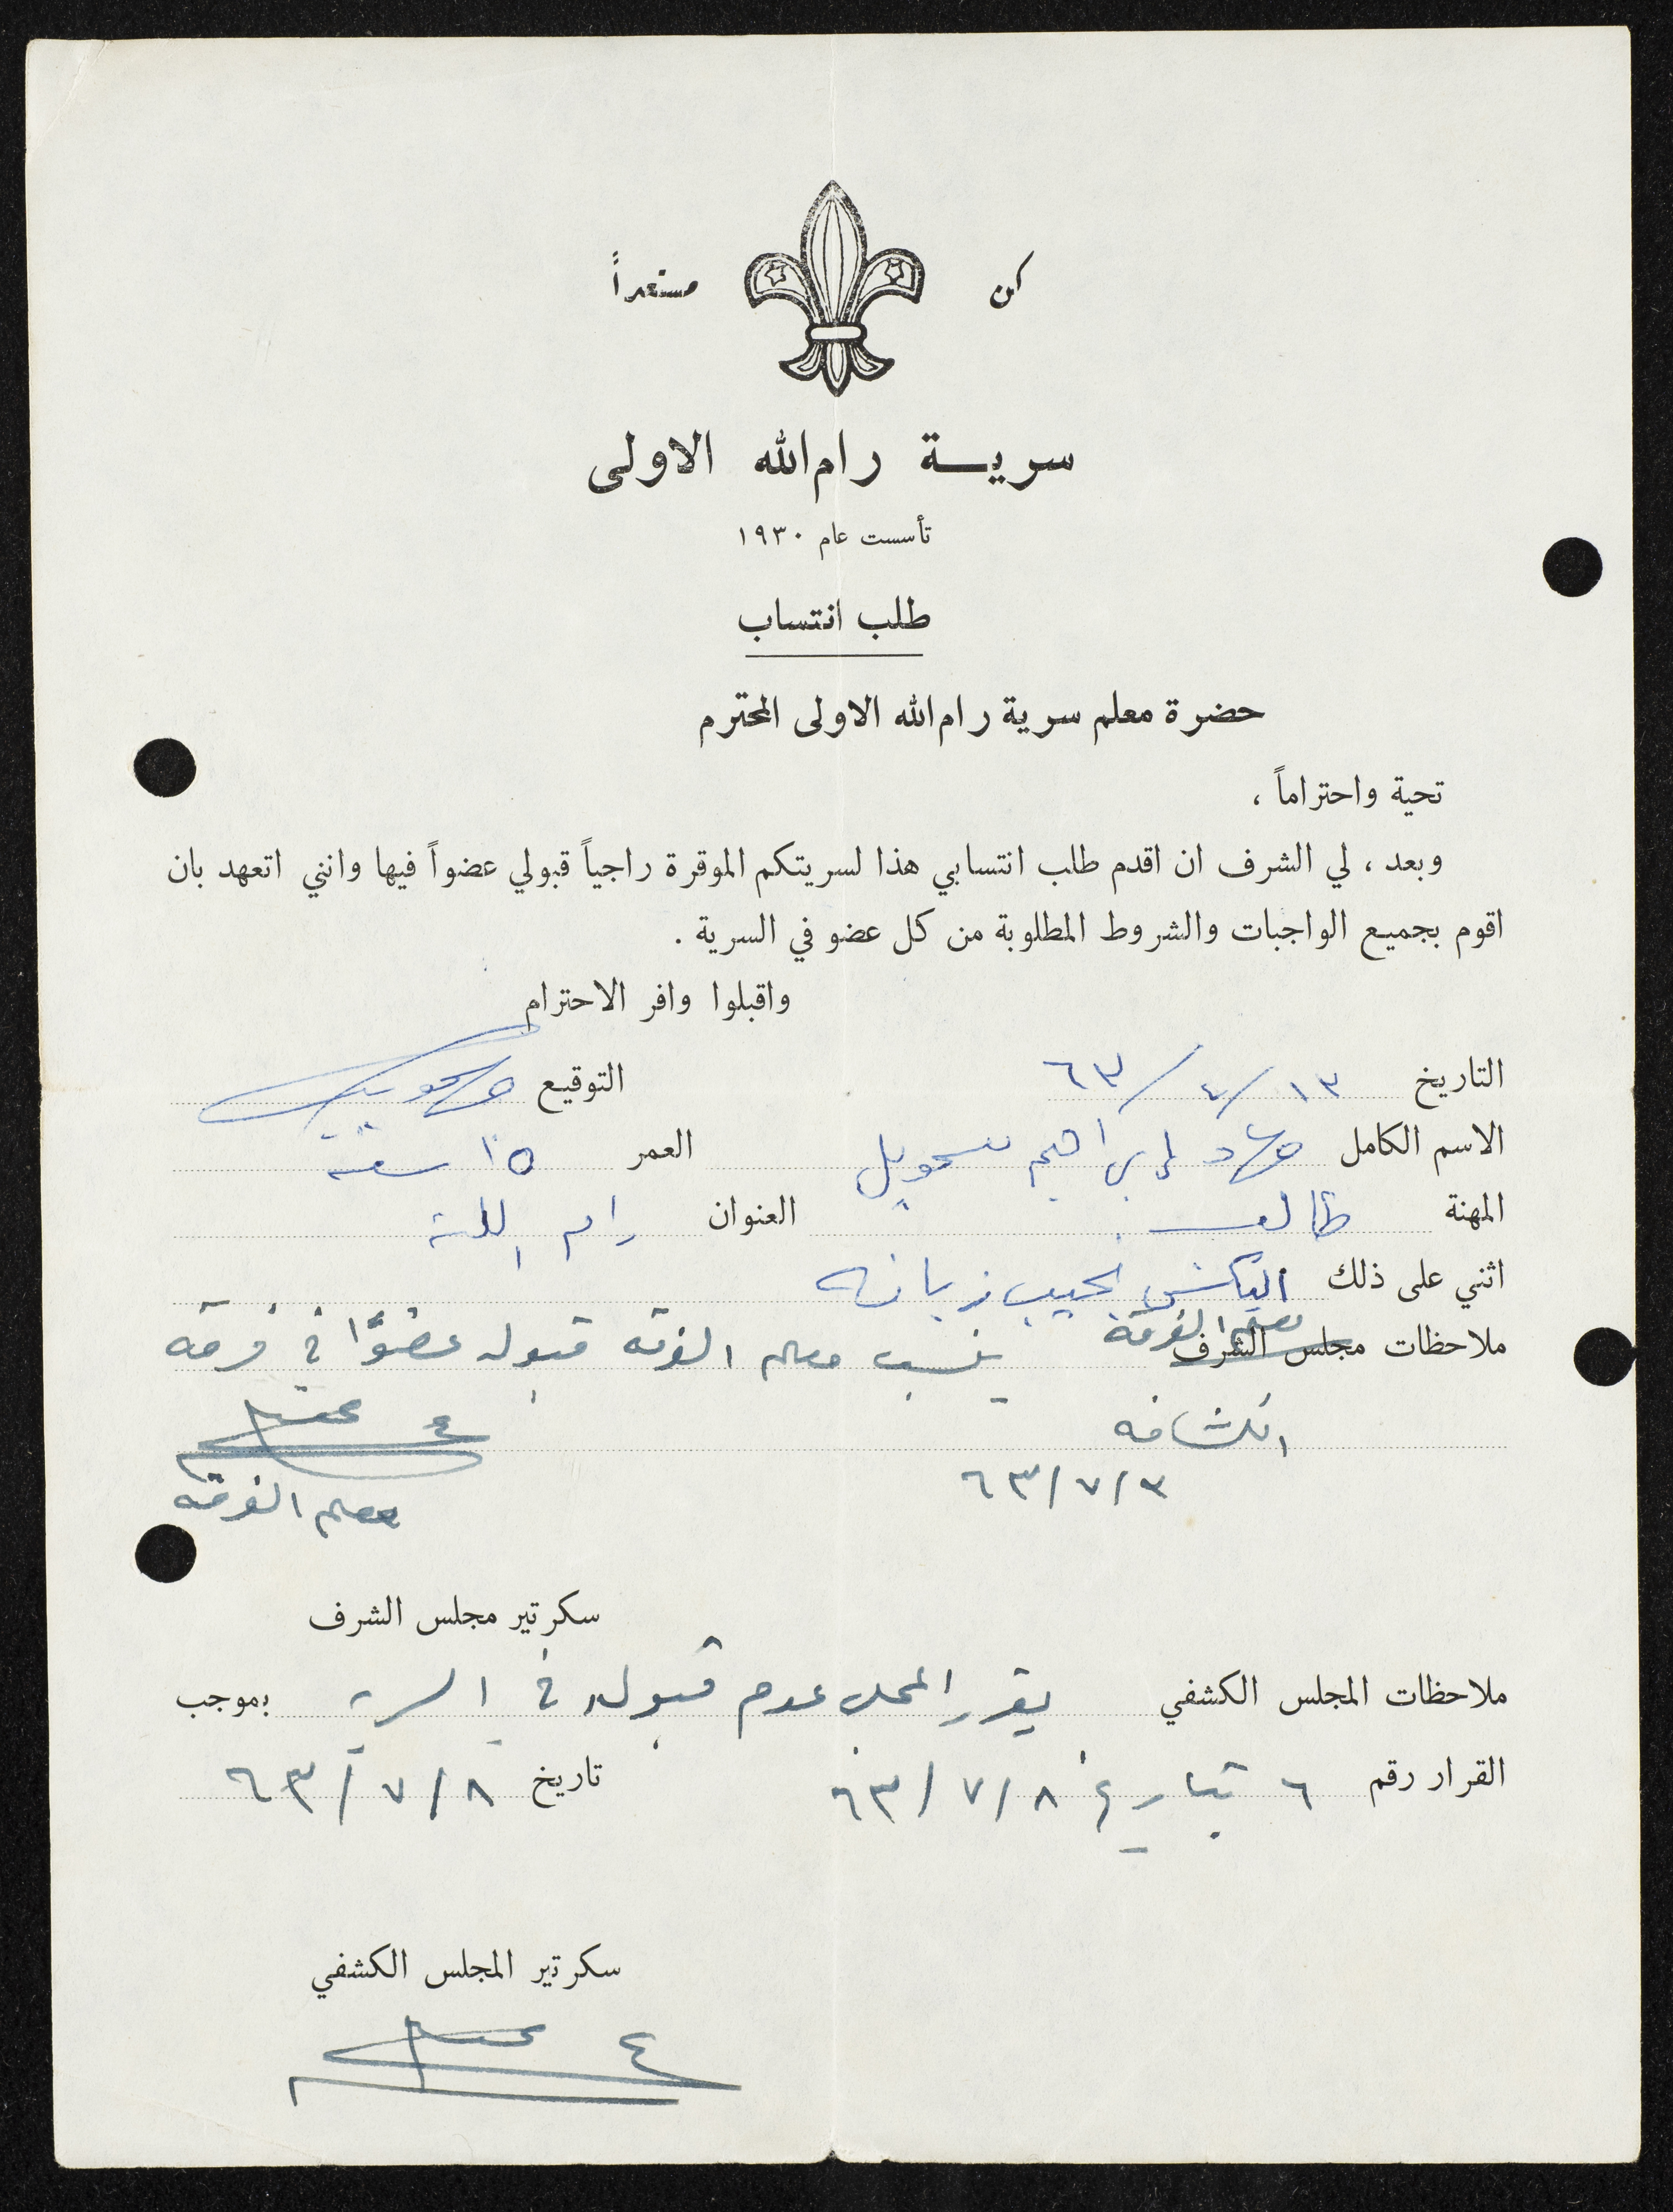 كن مستعداً
سرية رام الله الاولى
تأسست عام ١٩٣٠
طلب انتساب
حضرة معلم سرية رام الله الاولى المحترم
تحية واحتراماً ،
وبعد ، لي الشرف ان اقدم طلب انتسابي هذا لسريتكم الموقرة راجياً قبولي عضواً فيها وانني اتعهد بان
اقوم بجميع الواجبات والشروط المطلوبة من كل عضو في السرية .
واقبلوا وافر الاحترام
التاريخ ١٣/٤/٦٣ التوقيع
الاسم الكامل إبراهيم سحويل العمر ١٥ سنة
المهنة طالب العنوان رام الله
اثني على ذلك نجيب زبانه
معلم الفرقة
ملاحظات مجلس الشرف ينسب معلم الفرقه قبوله عضوًا في فرقه
الكشافه
٣/٧/٦٣
معلم الفرقه
سكرتير مجلس الشرف
ملاحظات المجلس الكشفي يقرر المجلس عدم قبوله في السرية بموجب
القرار رقم ٦ بتاريخ ٨/٧/٦٣ تاريخ ٨/٧/٦٣
سكرتير المجلس الكشفي